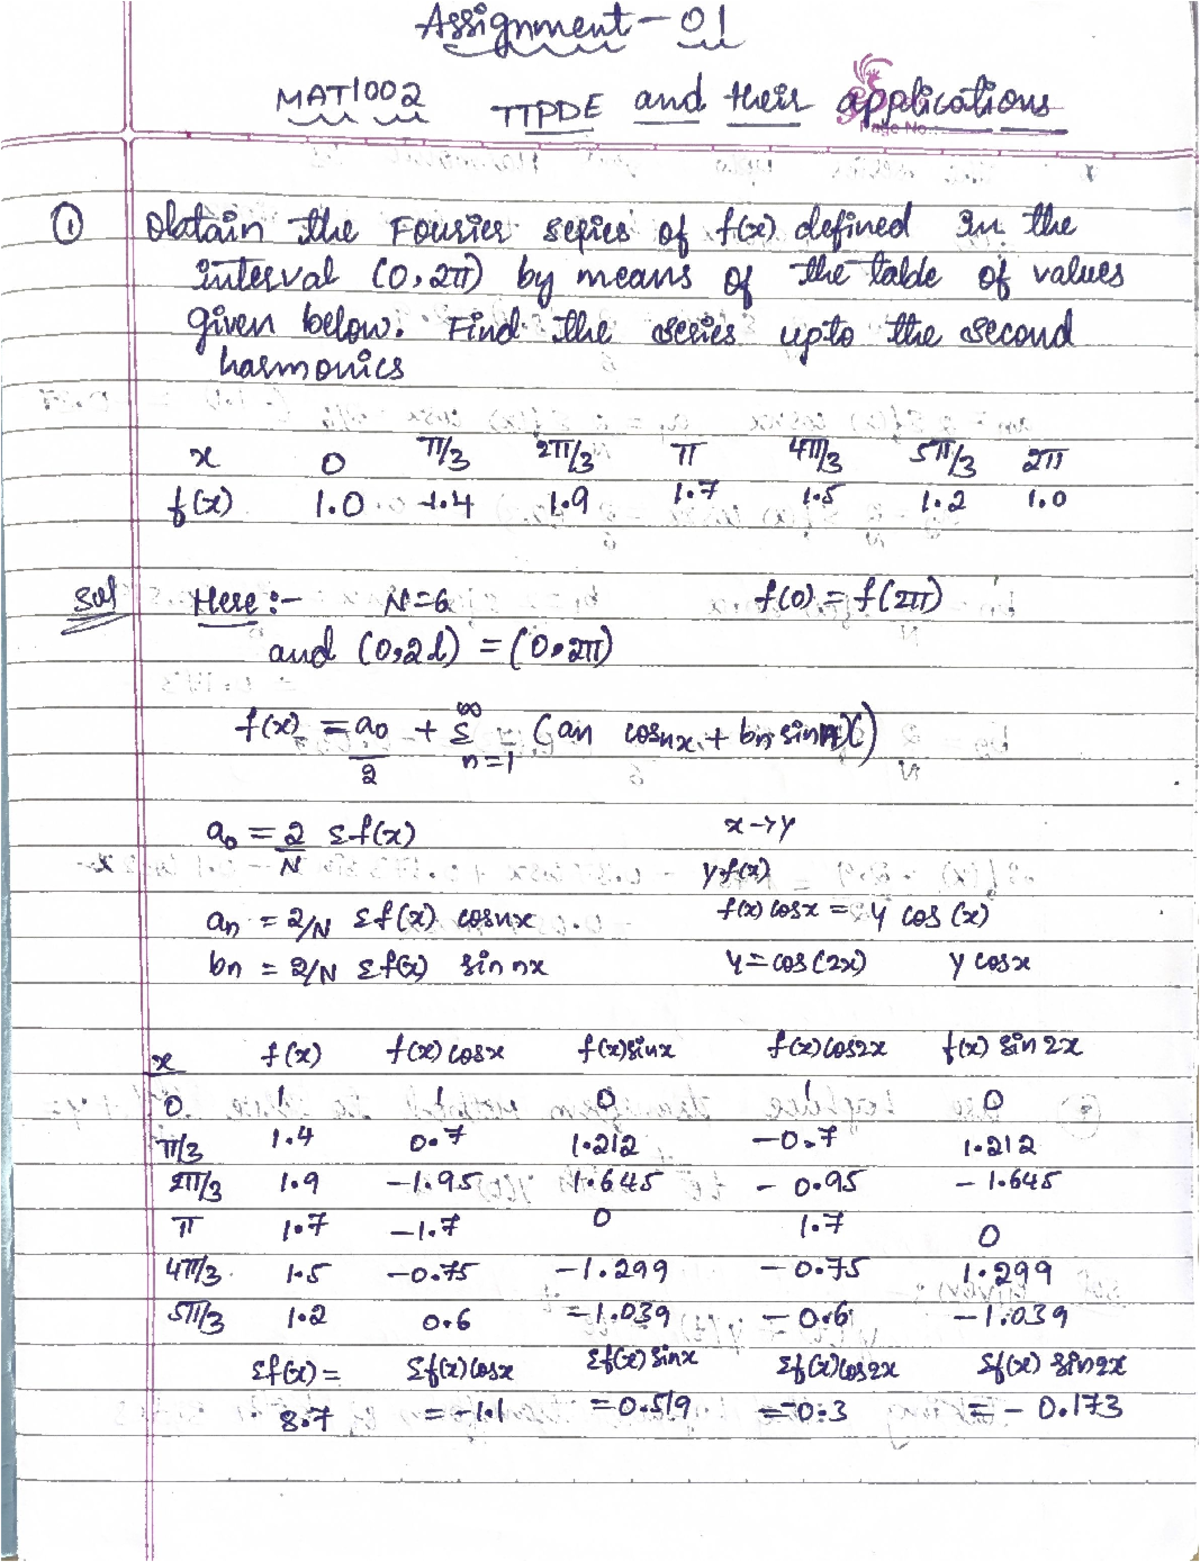 Assignment - 01
MAT1002 TTPDE and their applications
Page No.
① Obtain the Fourier series of f(x) defined in the
interval (0, 2π) by means of the table of values
given below. Find the series upto the second
harmonics
x 0 π/3 2π/3 π 4π/3 5π/3 2π
f(x) 1.0 1.4 1.9 1.7 1.5 1.2 1.0
Sol Here :- N=6 f(0) = f(2π)
and (0,2l) = (0,2π)
f(x) = a0/2 + Σ∞n=1 (an cosnx + bn sinnx)
a0 = 2/N Σf(x) x→y
y f(x)
an = 2/N Σf(x) cosnx f(x) cosx = y cos(x)
bn = 2/N Σf(x) sin nx y=cos(2x) y cosx
x f(x) f(x) cosx f(x)sinx f(x)cos2x f(x) sin 2x
0 1 1 0 1 0
π/3 1.4 0.7 1.212 -0.7 1.212
2π/3 1.9 -1.95 1.645 - 0.95 - 1.645
π 1.7 -1.7 0 1.7 0
4π/3 1.5 -0.75 -1.299 -0.75 1.299
5π/3 1.2 0.6 -1.039 - 0.6 -1.039
Σf(x) = Σf(x)cosx Σf(x) sinx Σf(x)cos2x Σf(x) sin2x
8.7 = -1.1 = 0.519 = -0.3 = - 0.173